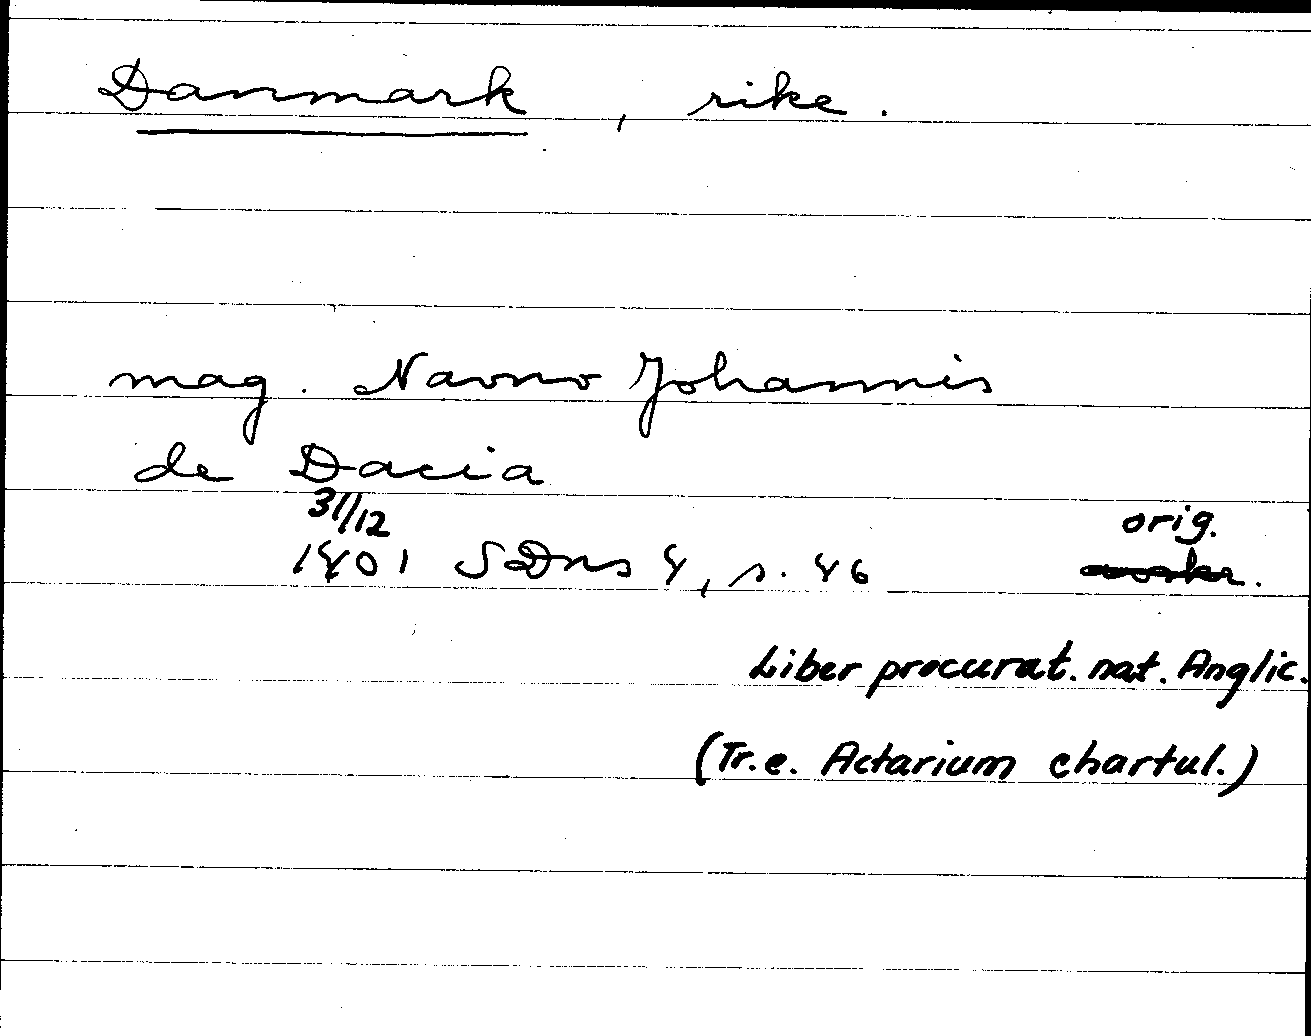 Danmark, rike.
mag. Navno Johannis
de Dacia
31/12
1401 SDns 4, s. 46 orig.
Liber procurat. nat. Anglic.
(Tr. e. Actarium chartul.)